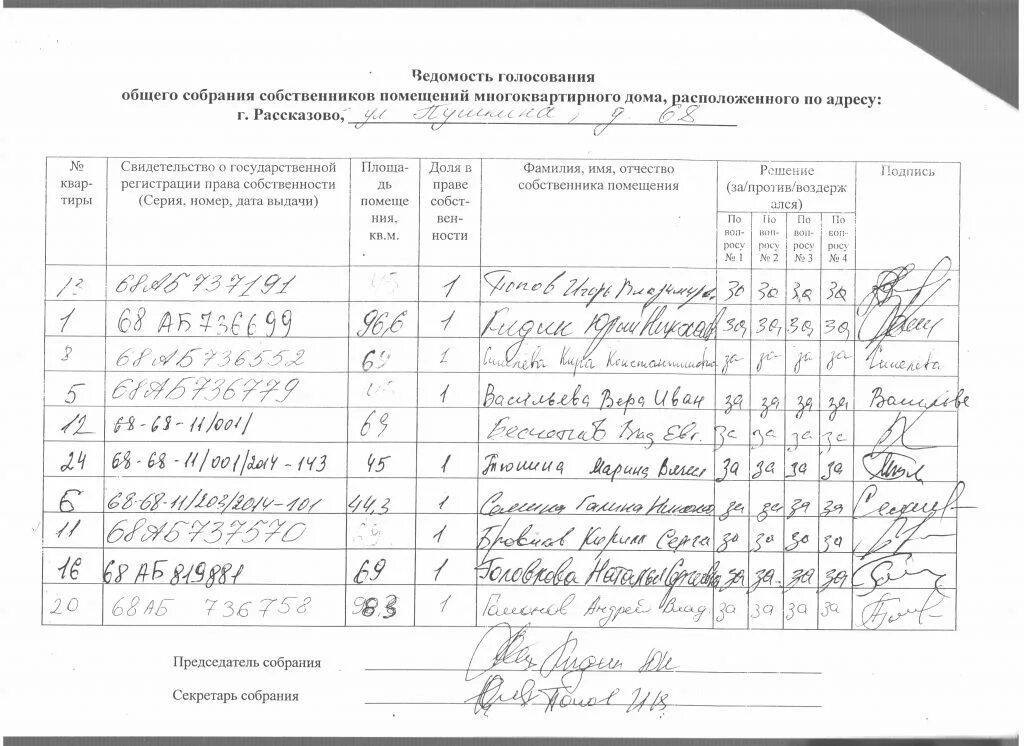 Ведомость голосования
общего собрания собственников помещений многоквартирного дома, расположенного по адресу:
г. Рассказово, ул Пушкина, д. 68
№ квар-тиры Свидетельство о государственной регистрации права собственности (Серия, номер, дата выдачи) Площа-дь помеще ния, кв.м. Доля в праве собст-вен-ности Фамилия, имя, отчество собственника помещения Решение (за/против/воздерж ался) Подпись
По воп-росу № 1 По воп-росу № 2 По воп-росу № 3 По воп-росу № 4
68АБ 737191 45 1 Попов Игорь Владимиров. за за за за
1 68 АБ 736699 96,6 1 Кидин Юрий Николаев за за за за
8 68АБ736552 69 1 Кира Константиновна за за за за
5 68АБ736779 45 1 Васильева Вера Иван за за за за Васильева
12 68-68-11/001/ 69 Влад Евг. за за за за
24 68-68-11/001/2014-143 45 1 Тюшина Марина за за за за
6 68-68-11/203/2014-101 44,3 1 Галина за за за за
11 68АБ737570 69 1 Кирилл Серге за за за за
16 68 АБ 819881 69 1 Головкова Наталья Сергеевна за за за за
20 68АБ 736758 1 Андрей Влад. за за за за
Председатель собрания Кидин ЮН
Секретарь собрания Попов ИВ